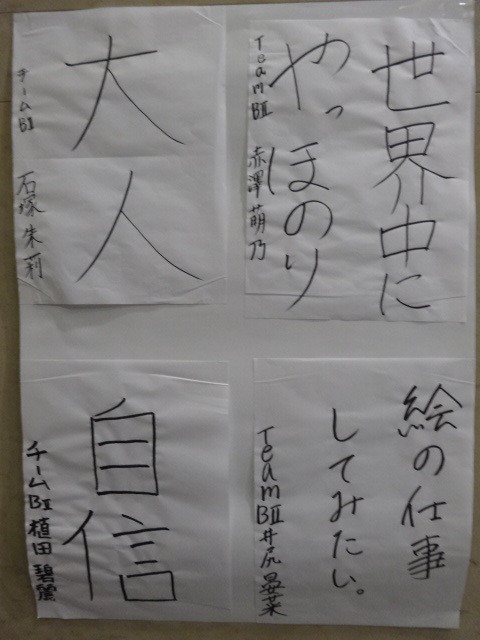 世界中に
やっほのり
TeamBII 赤澤萌乃
大人
チームBII
石塚朱莉
絵の仕事
してみたい。
TeamBII 井尻晏菜
自信
チームBII 植田碧麗